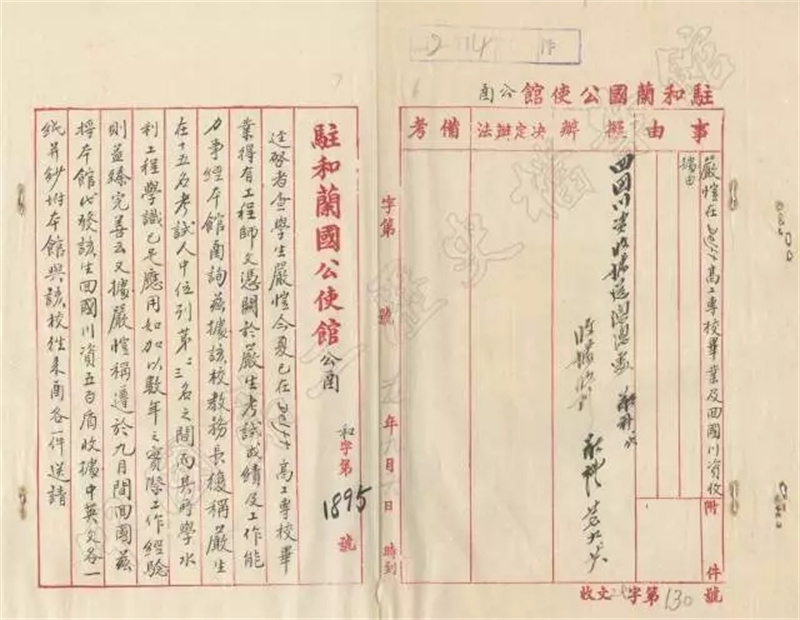 駐和蘭國公使館公函
事由
擬辦
決定辦法
備考
嚴愷在Delft高工專校畢業及回國川資收
據由
附件
收文字第130號
字第 號 年九月 日 時到
駐和蘭國公使館公函 和字第1895號
逕啓者查學生嚴愷今夏已在Delft高工專校畢
業得有工程師文憑關於嚴生考試成績及工作能
力事經本館函詢茲據該校教務長復稱嚴生
在十五名考試人中位列第二三名之間而其所學水
利工程學識已足應用如加以數年之實際工作經驗
則益臻完善云又據嚴愷稱遵於九月間回國茲
將本館代發該生回國川資五百盾收據中英文各一
紙并鈔附本館與該校往來函各一件送請